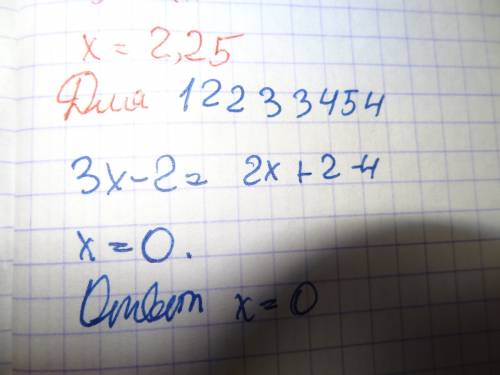 x = 2,25
Для 12233454
3x-2= 2x+2-4
x=0.
Ответ x=0